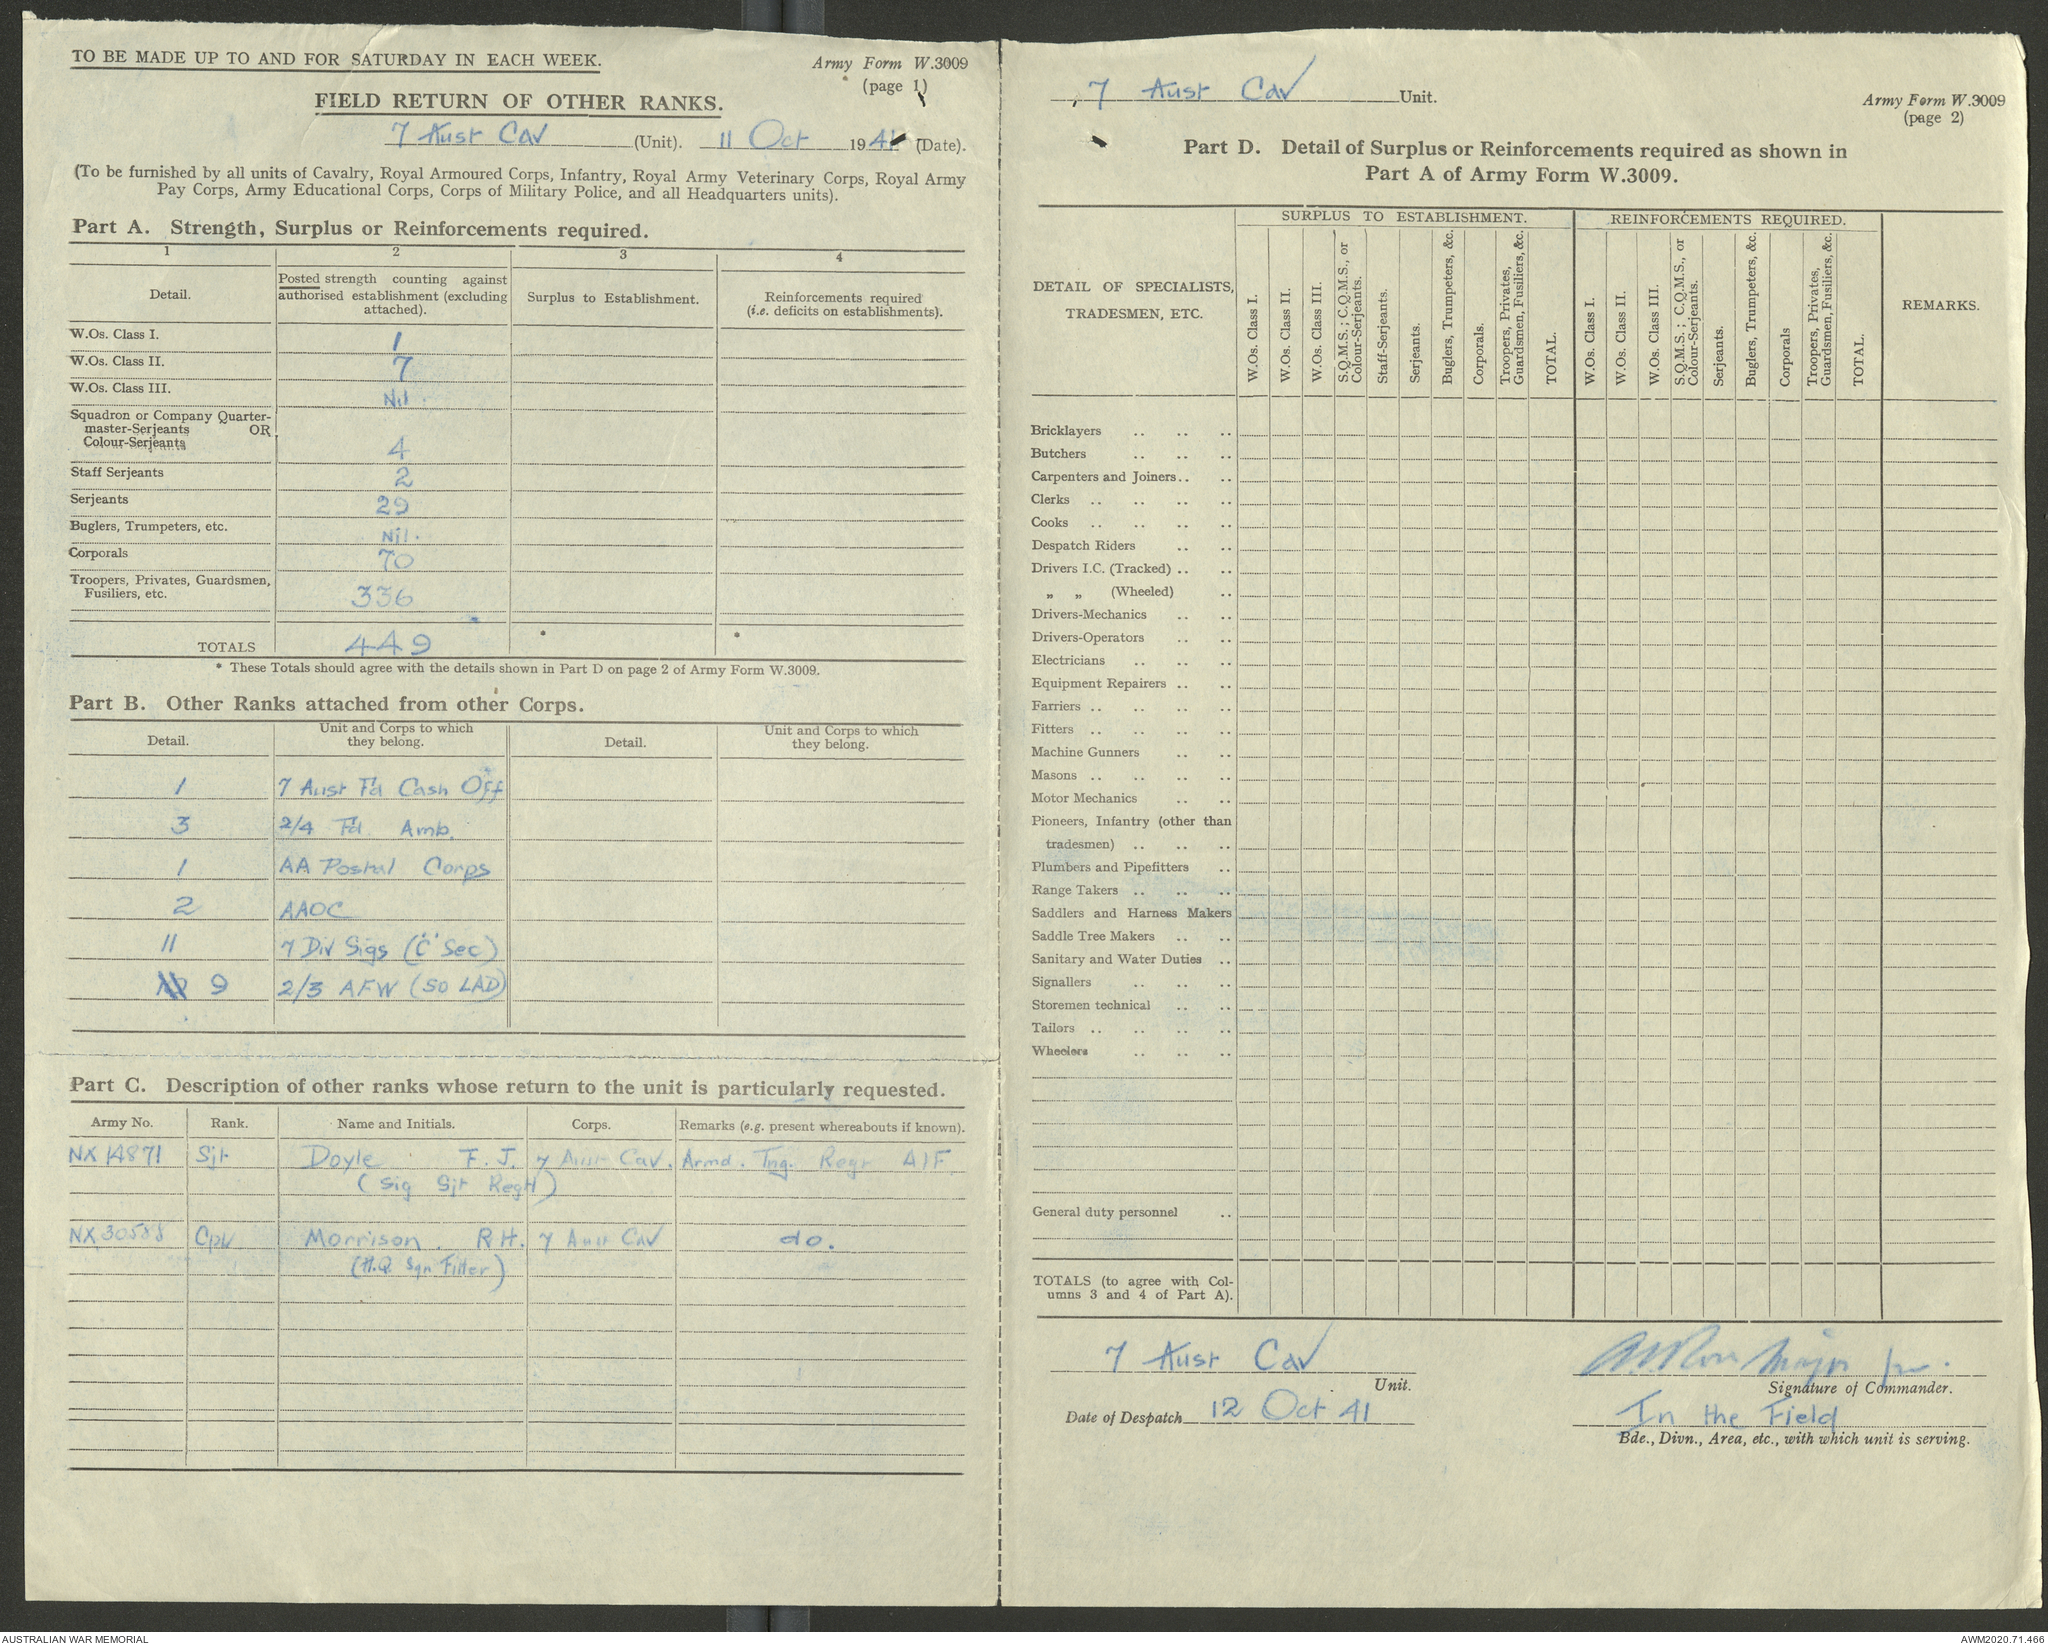 TO BE MADE UP TO AND FOR SATURDAY IN EACH WEEK.
Army Form W.3009
(page 1)
FIELD RETURN OF OTHER RANKS.
7 Aust Cav (Unit). 11 Oct 1941 (Date).
(To be furnished by all units of Cavalry, Royal Armoured Corps, Infantry, Royal Army Veterinary Corps, Royal Army
Pay Corps, Army Educational Corps, Corps of Military Police, and all Headquarters units).
Part A. Strength, Surplus or Reinforcements required.
1 2 3 4
Detail.
Posted strength counting against
authorised establishment (excluding
attached).
Surplus to Establishment.
Reinforcements required
(i.e. deficits on establishments).
W.Os. Class I. 1
W.Os. Class II. 7
W.Os. Class III. Nil.
Squadron or Company Quarter-
master-Serjeants OR
Colour-Serjeants 4
Staff Serjeants 2
Serjeants 29
Buglers, Trumpeters, etc. Nil.
Corporals 70
Troopers, Privates, Guardsmen,
Fusiliers, etc. 336
TOTALS 449 * *
* These Totals should agree with the details shown in Part D on page 2 of Army Form W.3009.
Part B. Other Ranks attached from other Corps.
Detail.
Unit and Corps to which
they belong.
Detail.
Unit and Corps to which
they belong.
1 7 Aust Fd Cash Off
3 2/4 Fd Amb.
1 AA Postal Corps
2 AAOC
11 7 Div Sigs ("C" Sec)
9 2/3 AFW (50 LAD)
Part C. Description of other ranks whose return to the unit is particularly requested.
Army No. Rank. Name and Initials. Corps. Remarks (e.g. present whereabouts if known).
NX 14871 Sjt Doyle F. J. 7 Aust Cav. Armd. Tng. Regt AIF
(Sig Sjt Regtl)
NX 30588 Cpl Morrison. R H. 7 Aust Cav do.
(H.Q. Sqn Fitter)
7 Aust Cav Unit.
Army Form W.3009
(page 2)
Part D. Detail of Surplus or Reinforcements required as shown in
Part A of Army Form W.3009.
DETAIL OF SPECIALISTS,
TRADESMEN, ETC.
SURPLUS TO ESTABLISHMENT.
W.Os. Class I.
W.Os. Class II.
W.Os. Class III.
S.Q.M.S.; C.Q.M.S., or
Colour-Serjeants.
Staff-Serjeants.
Serjeants.
Buglers, Trumpeters, &c.
Corporals.
Troopers, Privates,
Guardsmen, Fusiliers, &c.
TOTAL.
REINFORCEMENTS REQUIRED.
W.Os. Class I.
W.Os. Class II.
W.Os. Class III.
S.Q.M.S.; C.Q.M.S., or
Colour-Serjeants.
Serjeants.
Buglers, Trumpeters, &c.
Corporals
Troopers, Privates,
Guardsmen, Fusiliers, &c.
TOTAL.
REMARKS.
Bricklayers .. .. ..
Butchers .. .. ..
Carpenters and Joiners.. ..
Clerks .. .. .. ..
Cooks .. .. .. ..
Despatch Riders .. ..
Drivers I.C. (Tracked) .. ..
„ „ (Wheeled) ..
Drivers-Mechanics .. ..
Drivers-Operators .. ..
Electricians .. .. ..
Equipment Repairers .. ..
Farriers .. .. .. ..
Fitters .. .. .. ..
Machine Gunners .. ..
Masons .. .. .. ..
Motor Mechanics .. ..
Pioneers, Infantry (other than
tradesmen) .. .. ..
Plumbers and Pipefitters ..
Range Takers .. .. ..
Saddlers and Harness Makers
Saddle Tree Makers .. ..
Sanitary and Water Duties ..
Signallers .. .. ..
Storemen technical .. ..
Tailors .. .. .. ..
Wheelers .. .. ..
General duty personnel ..
TOTALS (to agree with Col-
umns 3 and 4 of Part A).
7 Aust Cav
Unit.
Major for.
Signature of Commander.
Date of Despatch 12 Oct 41
In the Field
Bde., Divn., Area, etc., with which unit is serving.
AUSTRALIAN WAR MEMORIAL
AWM2020.71.466